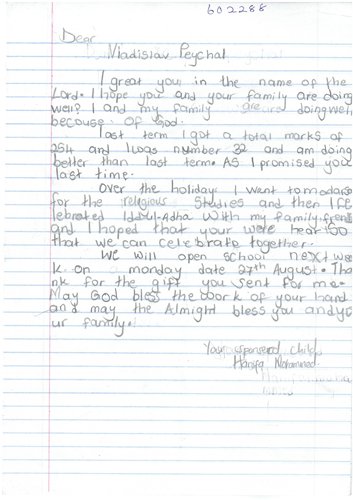 602288
Dear
Vladislav Peychal
I great you in the name of the
Lord. I hope you and your family are doing
well? I and my family are doing well
becouse Of God.
Last term I got a total marks of
254 and I was number 32 and am doing
better than last term. AS I promised you
last time.
Over the holiday I went to madaras
for the religious Studies and then I ce
lebrated Iddul-Adha with my family friends
and I hoped that your were hear SO
that we can celebrate together.
We will open school next wee
k on a monday date 27th August. Tha
nk for the gift you sent for me.
May God bless the work of your hand
and may the Almight bless you and yo
ur family.
Your sponserd child
Hanifa Mohammed